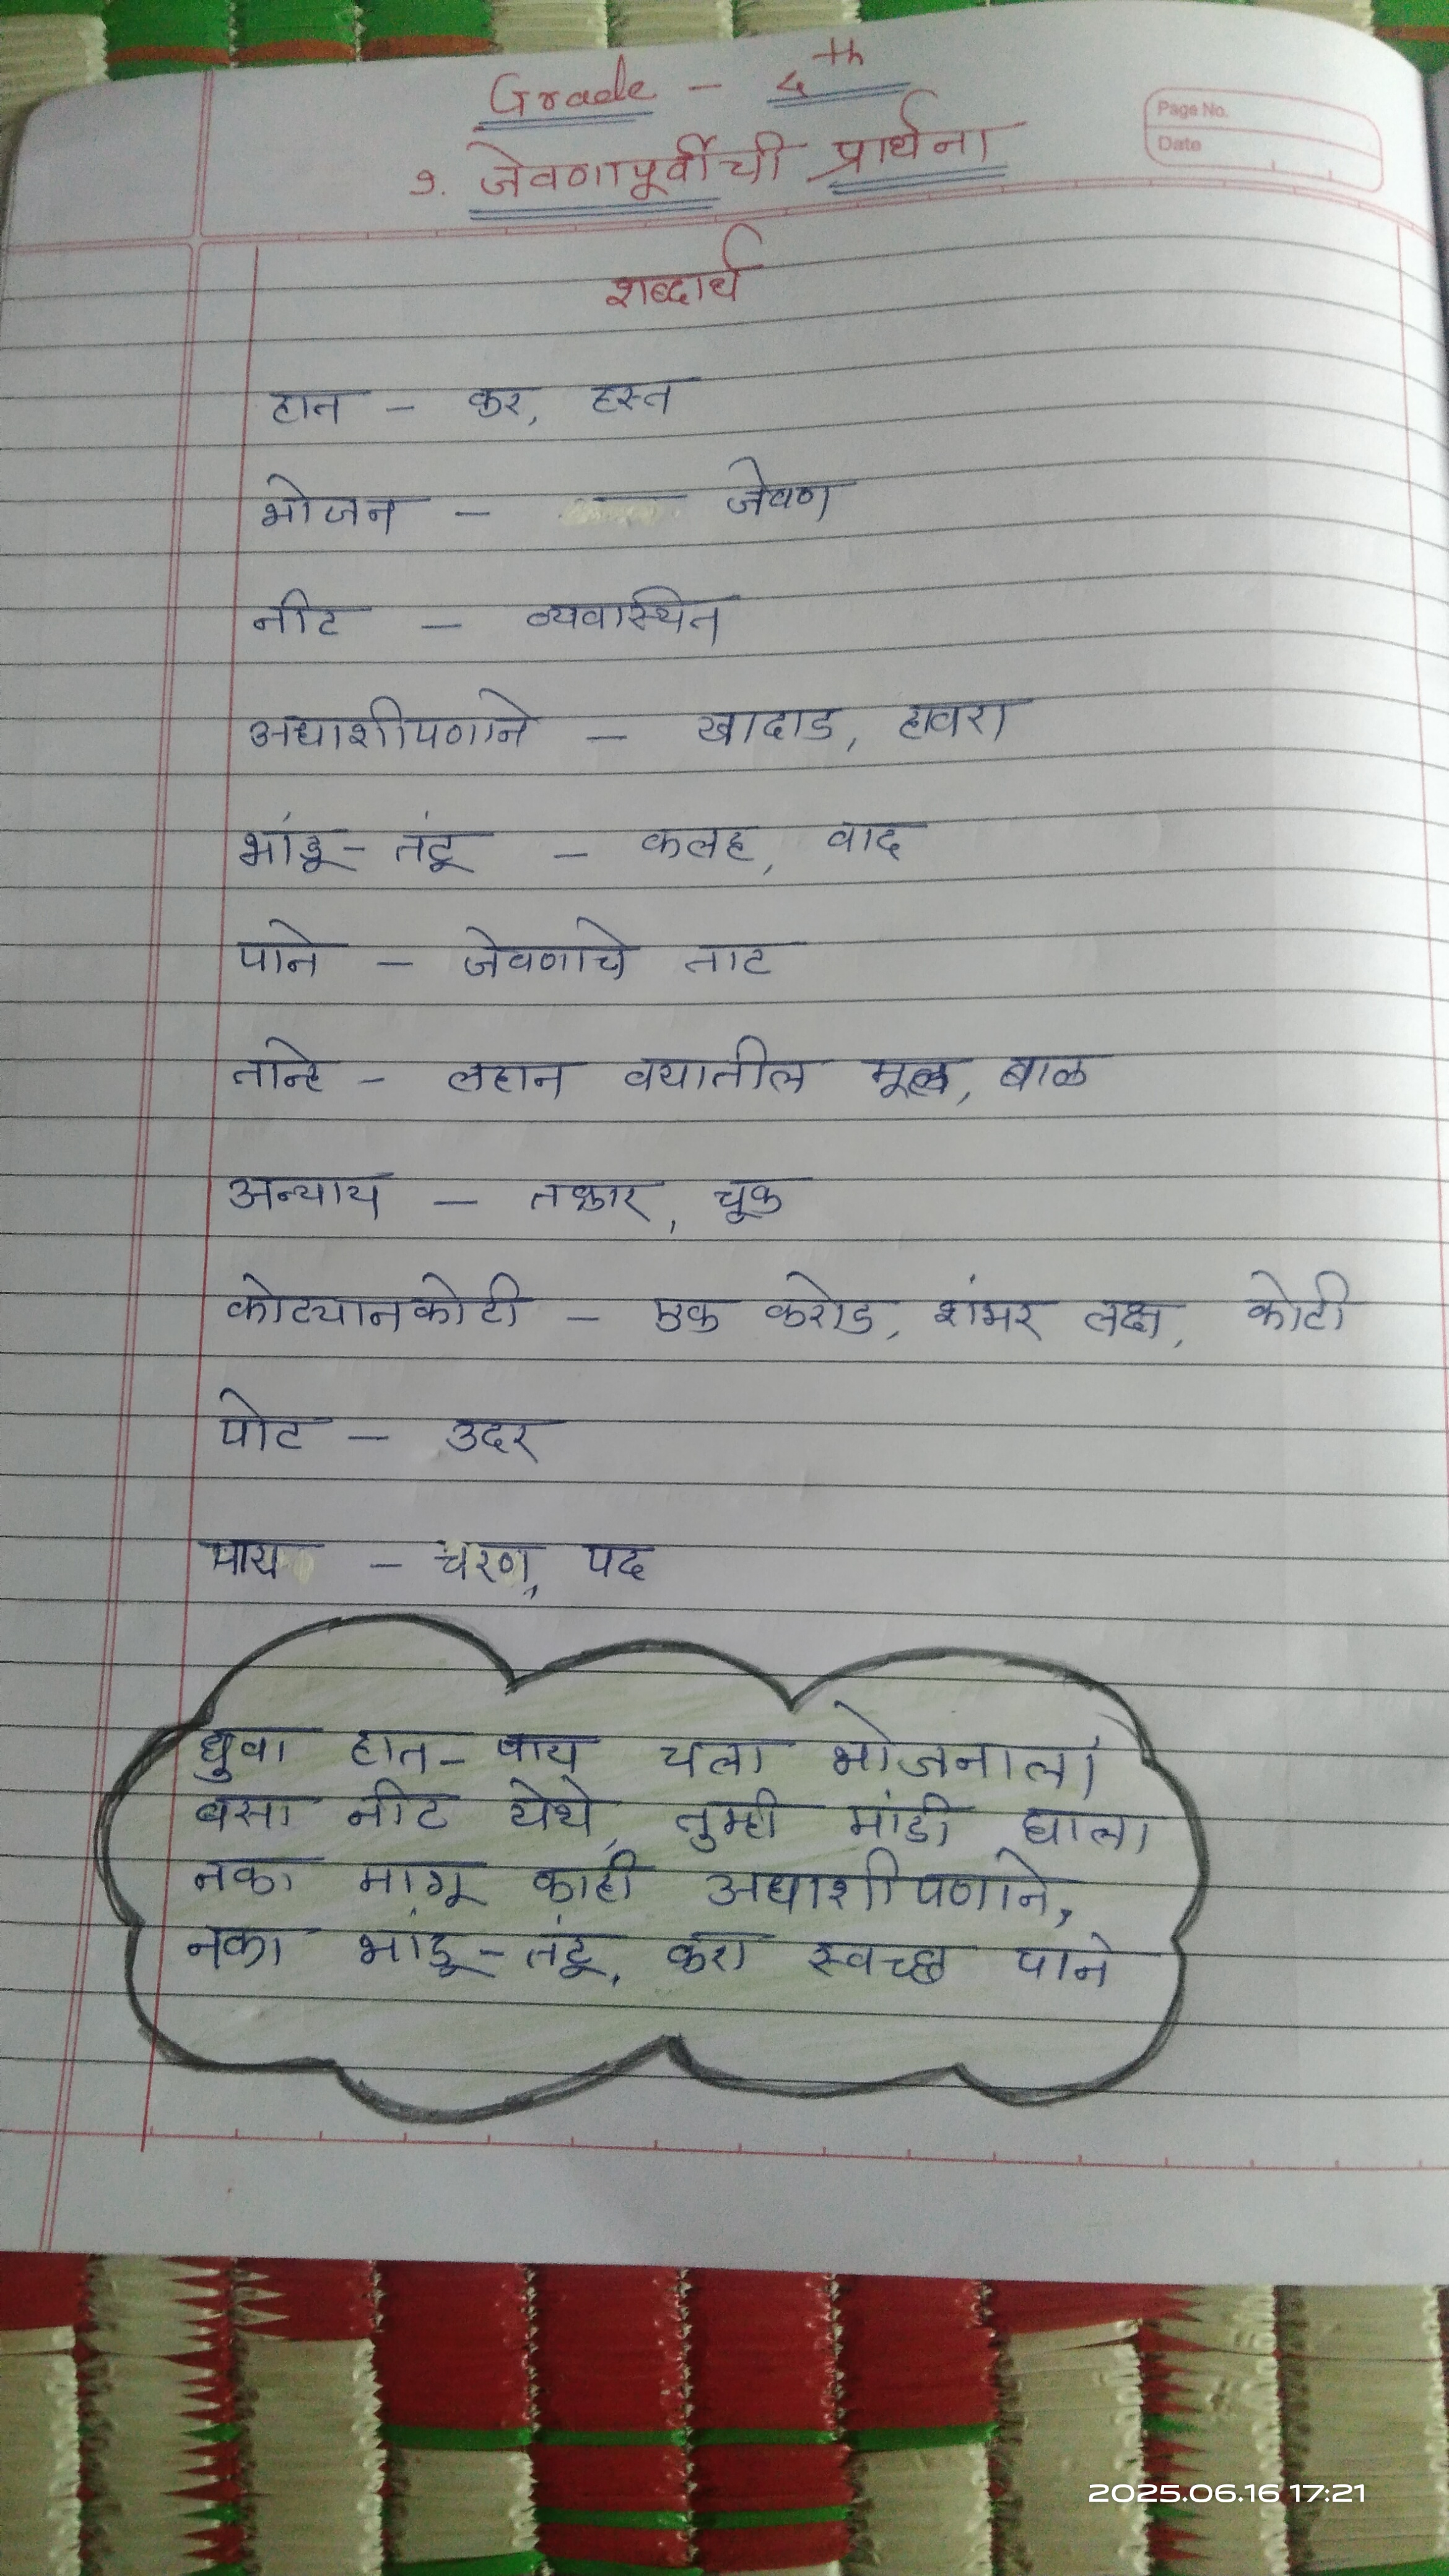 Grade - 4th
Page No.
Date
१. जेवणापूर्वीची प्रार्थना
शब्दार्थ
हात - कर, हस्त
भोजन - जेवण
नीट - व्यवस्थित
अधाशीपणाने - खादाड, हावरा
भांडू-तंटू - कलह, वाद
पाने - जेवणाचे ताट
तान्हे - लहान वयातील मूल, बाळ
अन्याय - तक्रार, चूक
कोट्यानकोटी - एक करोड, शंभर लक्ष, कोटी
पोट - उदर
पाय - चरण, पद
धुवा हात-पाय चला भोजनाला
बसा नीट येथे, तुम्ही मांडी घाला
नका मागू काही अधाशीपणाने,
नका भांडू-तंटू, करा स्वच्छ पाने
2025.06.16 17:21